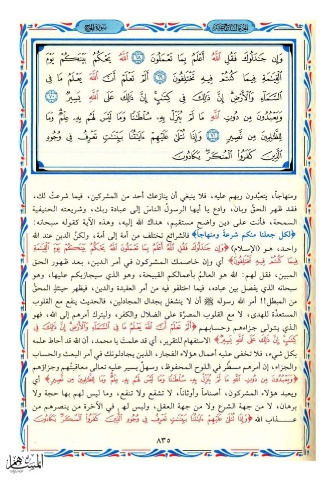 وَإِن جَٰدَلُوكَ فَقُلِ ٱللَّهُ أَعْلَمُ بِمَا تَعْمَلُونَ ۝ ٱللَّهُ يَحْكُمُ بَيْنَكُمْ يَوْمَ
ٱلْقِيَٰمَةِ فِيمَا كُنتُمْ فِيهِ تَخْتَلِفُونَ ۝ أَلَمْ تَعْلَمْ أَنَّ ٱللَّهَ يَعْلَمُ مَا فِى
ٱلسَّمَآءِ وَٱلْأَرْضِ إِنَّ ذَٰلِكَ فِى كِتَٰبٍ إِنَّ ذَٰلِكَ عَلَى ٱللَّهِ يَسِيرٌ ۝
وَيَعْبُدُونَ مِن دُونِ ٱللَّهِ مَا لَمْ يُنَزِّلْ بِهِۦ سُلْطَٰنًا وَمَا لَيْسَ لَهُم بِهِۦ عِلْمٌ وَمَا
لِلظَّٰلِمِينَ مِن نَّصِيرٍ ۝ وَإِذَا تُتْلَىٰ عَلَيْهِمْ ءَايَٰتُنَا بَيِّنَٰتٍ تَعْرِفُ فِى وُجُوهِ
ٱلَّذِينَ كَفَرُوا۟ ٱلْمُنكَرَ يَكَادُونَ
ومنهاجاً، يتعبَّدون ربهم عليه، فلا ينبغي أن ينازعك أحد من المشركين، فيما شرعتُ لك،
فقد ظهر الحقُّ وبان، وادع يا أيها الرسولُ الناسَ إلى عبادة ربك، وشريعته الحنيفية
السمحة، فأنت على دين واضح مستقيم، هداك الله إليه، وهذه الآية كقوله سبحانه:
﴿لكل جعلنا منكم شرعةً ومنهاجاً﴾ فالشرائع تختلف من أمة إلى أمة، ولكنَّ الدين عند الله
واحد، هو (الإسلام) ﴿وَإِن جَٰدَلُوكَ فَقُلِ ٱللَّهُ أَعْلَمُ بِمَا تَعْمَلُونَ ٱللَّهُ يَحْكُمُ بَيْنَكُمْ يَوْمَ ٱلْقِيَٰمَةِ
فِيمَا كُنتُمْ فِيهِ تَخْتَلِفُونَ﴾ أي وإن خاصمك المشركون في أمر الدين، بعد ظهور الحق
المبين، فقل لهم: الله هو العالمُ بأعمالكم القبيحة، وهو الذي سيجازيكم عليها، وهو
سبحانه الذي يفصل بين عباده، فيما اختلفوا فيه من أمر العقيدة والدين، فيظهر حينئذٍ المحقُّ
من المبطل!! أمر الله رسوله ﷺ أن لا ينشغل بجدال المجادلين، فالحديث ينفع مع القلوب
المستعدَّة للهدى، لا مع القلوب المصرَّة على الضلال والكفر، وليترك أمرهم إلى الله، فهو
الذي يتولى جزاءهم وحسابهم ﴿أَلَمْ تَعْلَمْ أَنَّ ٱللَّهَ يَعْلَمُ مَا فِى ٱلسَّمَآءِ وَٱلْأَرْضِ إِنَّ ذَٰلِكَ فِى
كِتَٰبٍ إِنَّ ذَٰلِكَ عَلَى ٱللَّهِ يَسِيرٌ﴾ الاستفهام للتقرير، أي قد علمتَ يا محمد، أن الله قد أحاط علمه
بكل شيء، فلا تخفى عليه أعمال هؤلاء الفجار، الذين يجادلونك في أمر البعث والحساب
والجزاء، إن أمرهم مسطَّر في اللوح المحفوظ، وسهلٌ يسير عليه تعالى معاقبتُهم وجزاؤهم
﴿وَيَعْبُدُونَ مِن دُونِ ٱللَّهِ مَا لَمْ يُنَزِّلْ بِهِۦ سُلْطَٰنًا وَمَا لَيْسَ لَهُم بِهِۦ عِلْمٌ وَمَا لِلظَّٰلِمِينَ مِن نَّصِيرٍ﴾ أي
ويعبد هؤلاء المشركون، أصناماً وأوثاناً، لا تشفع ولا تنفع، وما ليس لهم بها حجة ولا
برهان، لا من جهة الشرع ولا من جهة العقل، وليس لهم في الآخرة من ينصرهم من
عذاب الله ﴿وَإِذَا تُتْلَىٰ عَلَيْهِمْ ءَايَٰتُنَا بَيِّنَٰتٍ تَعْرِفُ فِى وُجُوهِ ٱلَّذِينَ كَفَرُوا۟ ٱلْمُنكَرَ يَكَادُونَ
٨٣٥